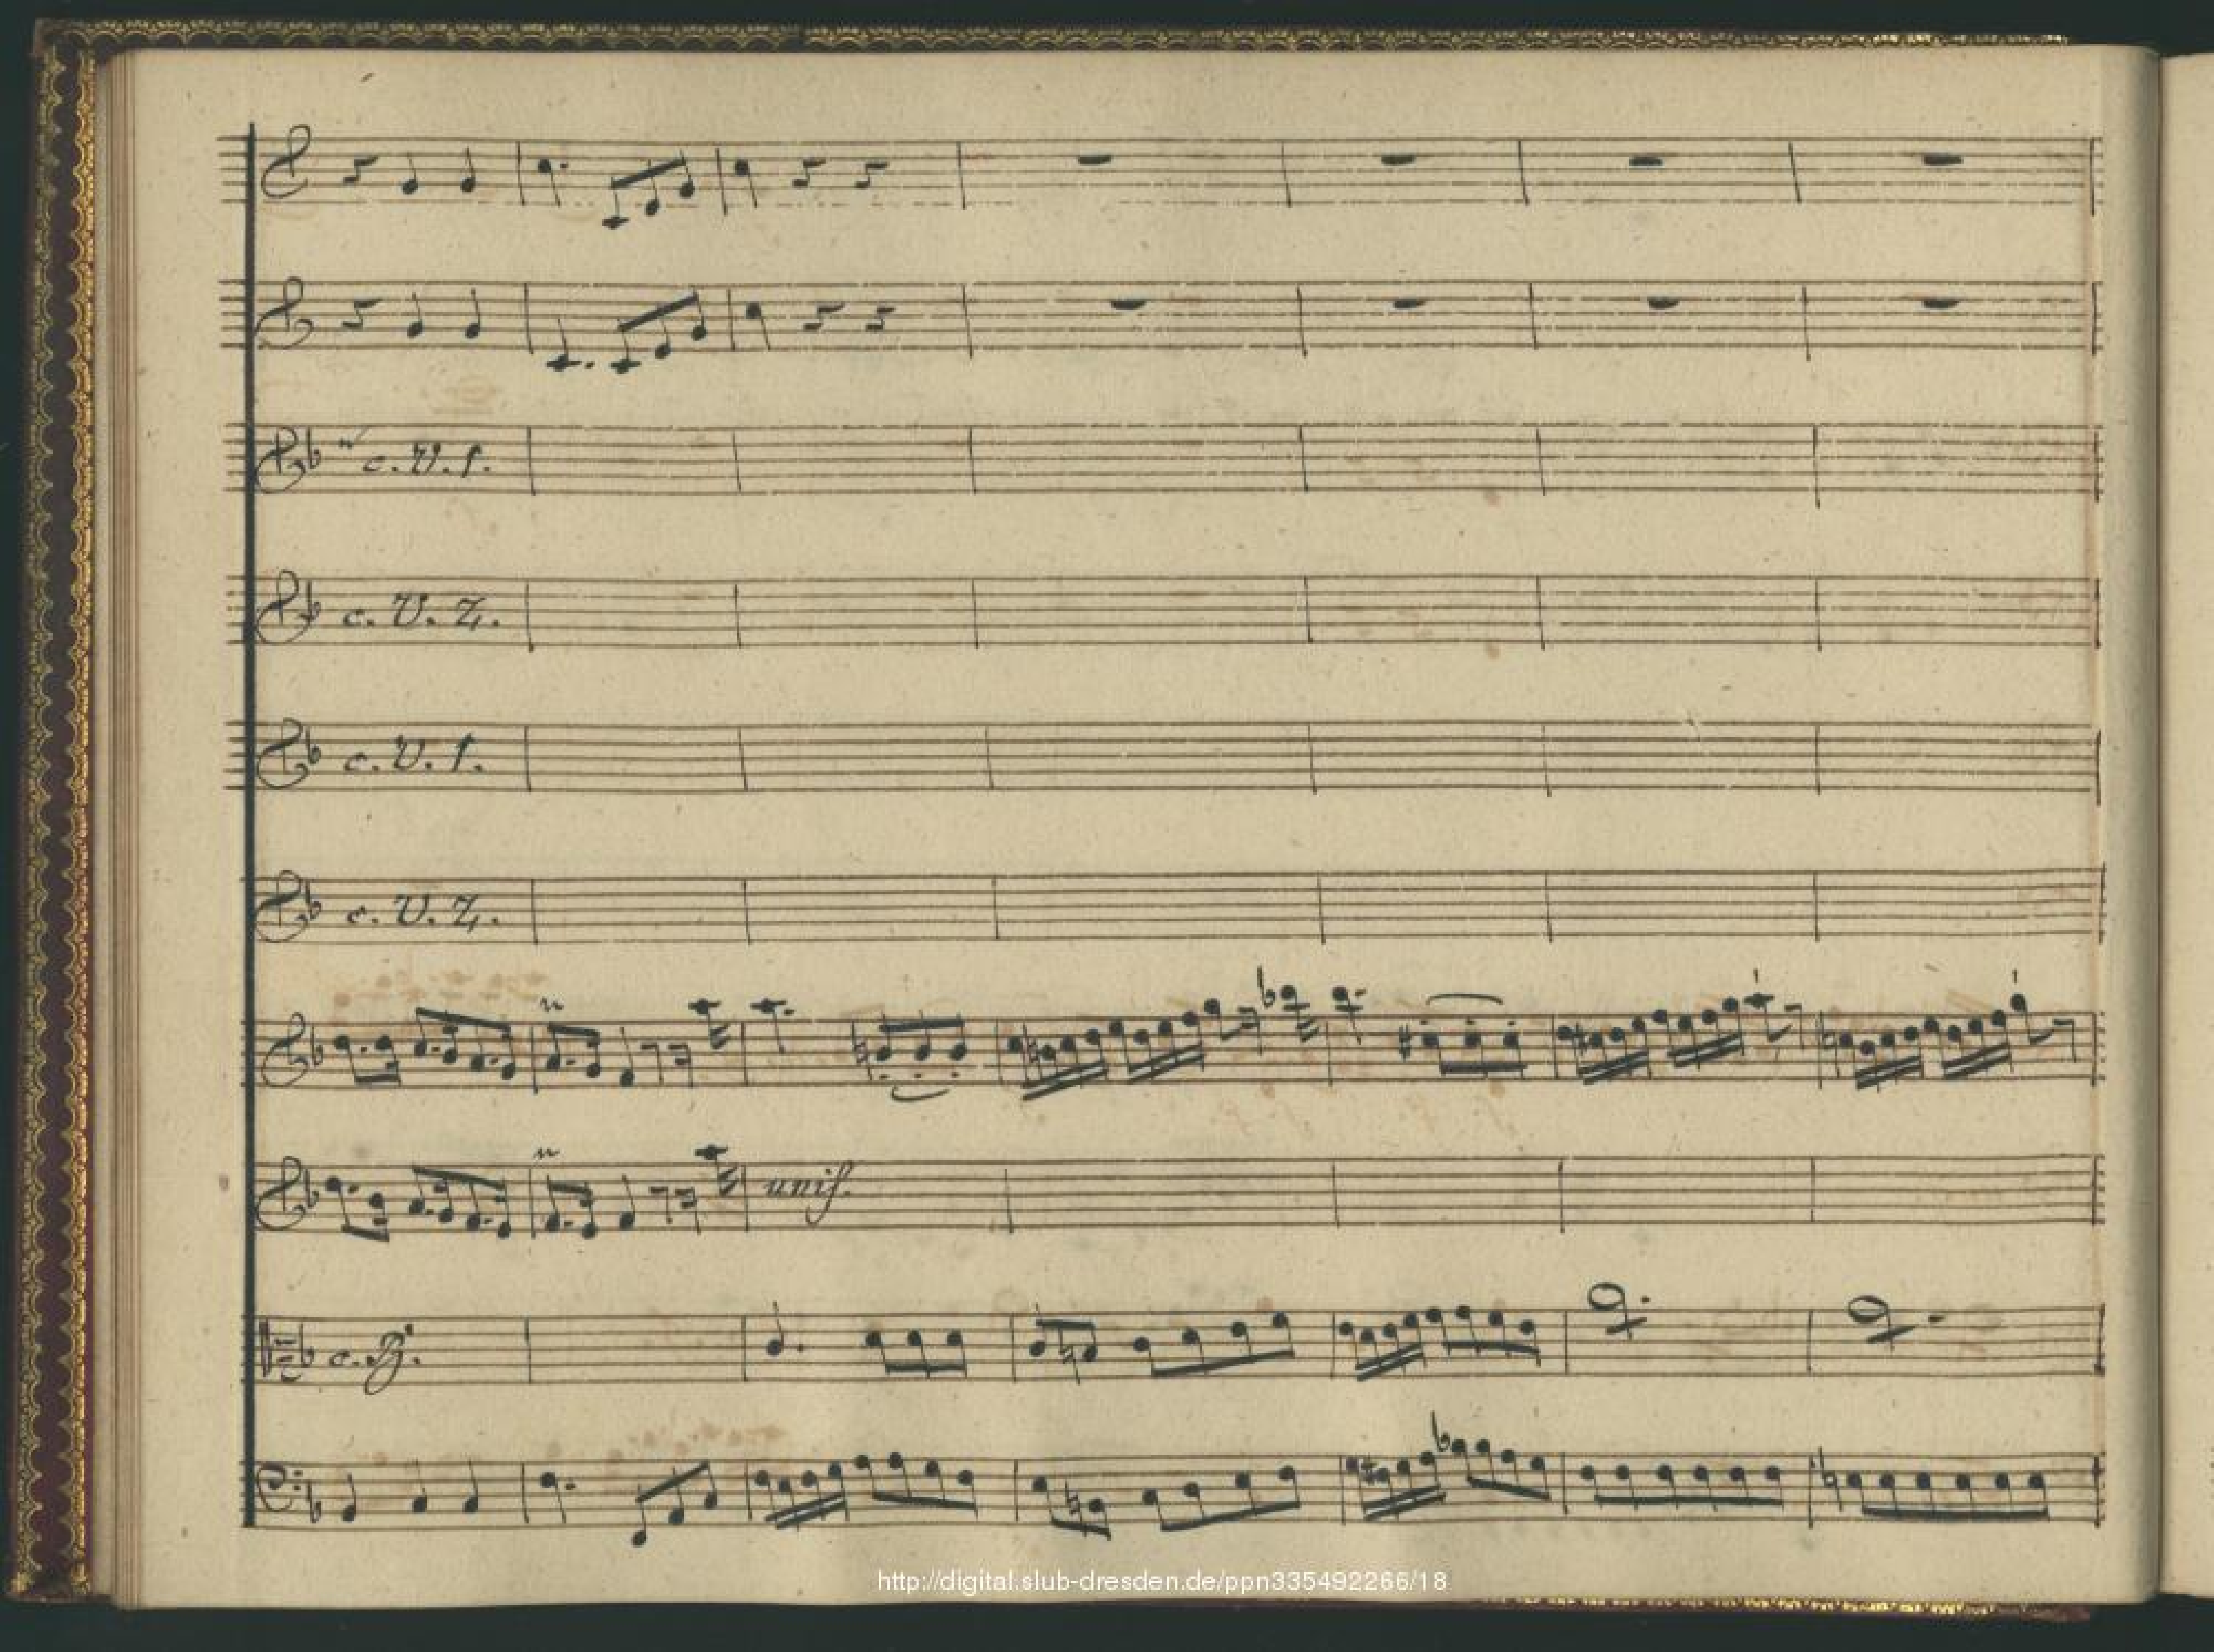 c. V. 1.
c. V. 2.
c. V. 1.
c. V. 2.
unis.
c. B.
http://digital.slub-dresden.de/ppn335492266/18